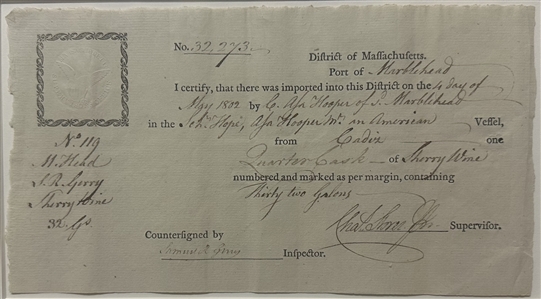 No. 32,273.
District of Massachusetts.
Port of Marblehead
I certify, that there was imported into this District on the 4 day of
May 1802 by C. Asa Hooper of Marblehead
in the Schr. Hope, Asa Hooper Mr. an American Vessel,
from Cadiz one
Quarter Cask of Sherry Wine
numbered and marked as per margin, containing
Thirty two Galons
Supervisor.
Countersigned by
Samuel R Gerry
Inspector.
No 119
M. Head
S. R. Gerry
Sherry Wine
32 Gs